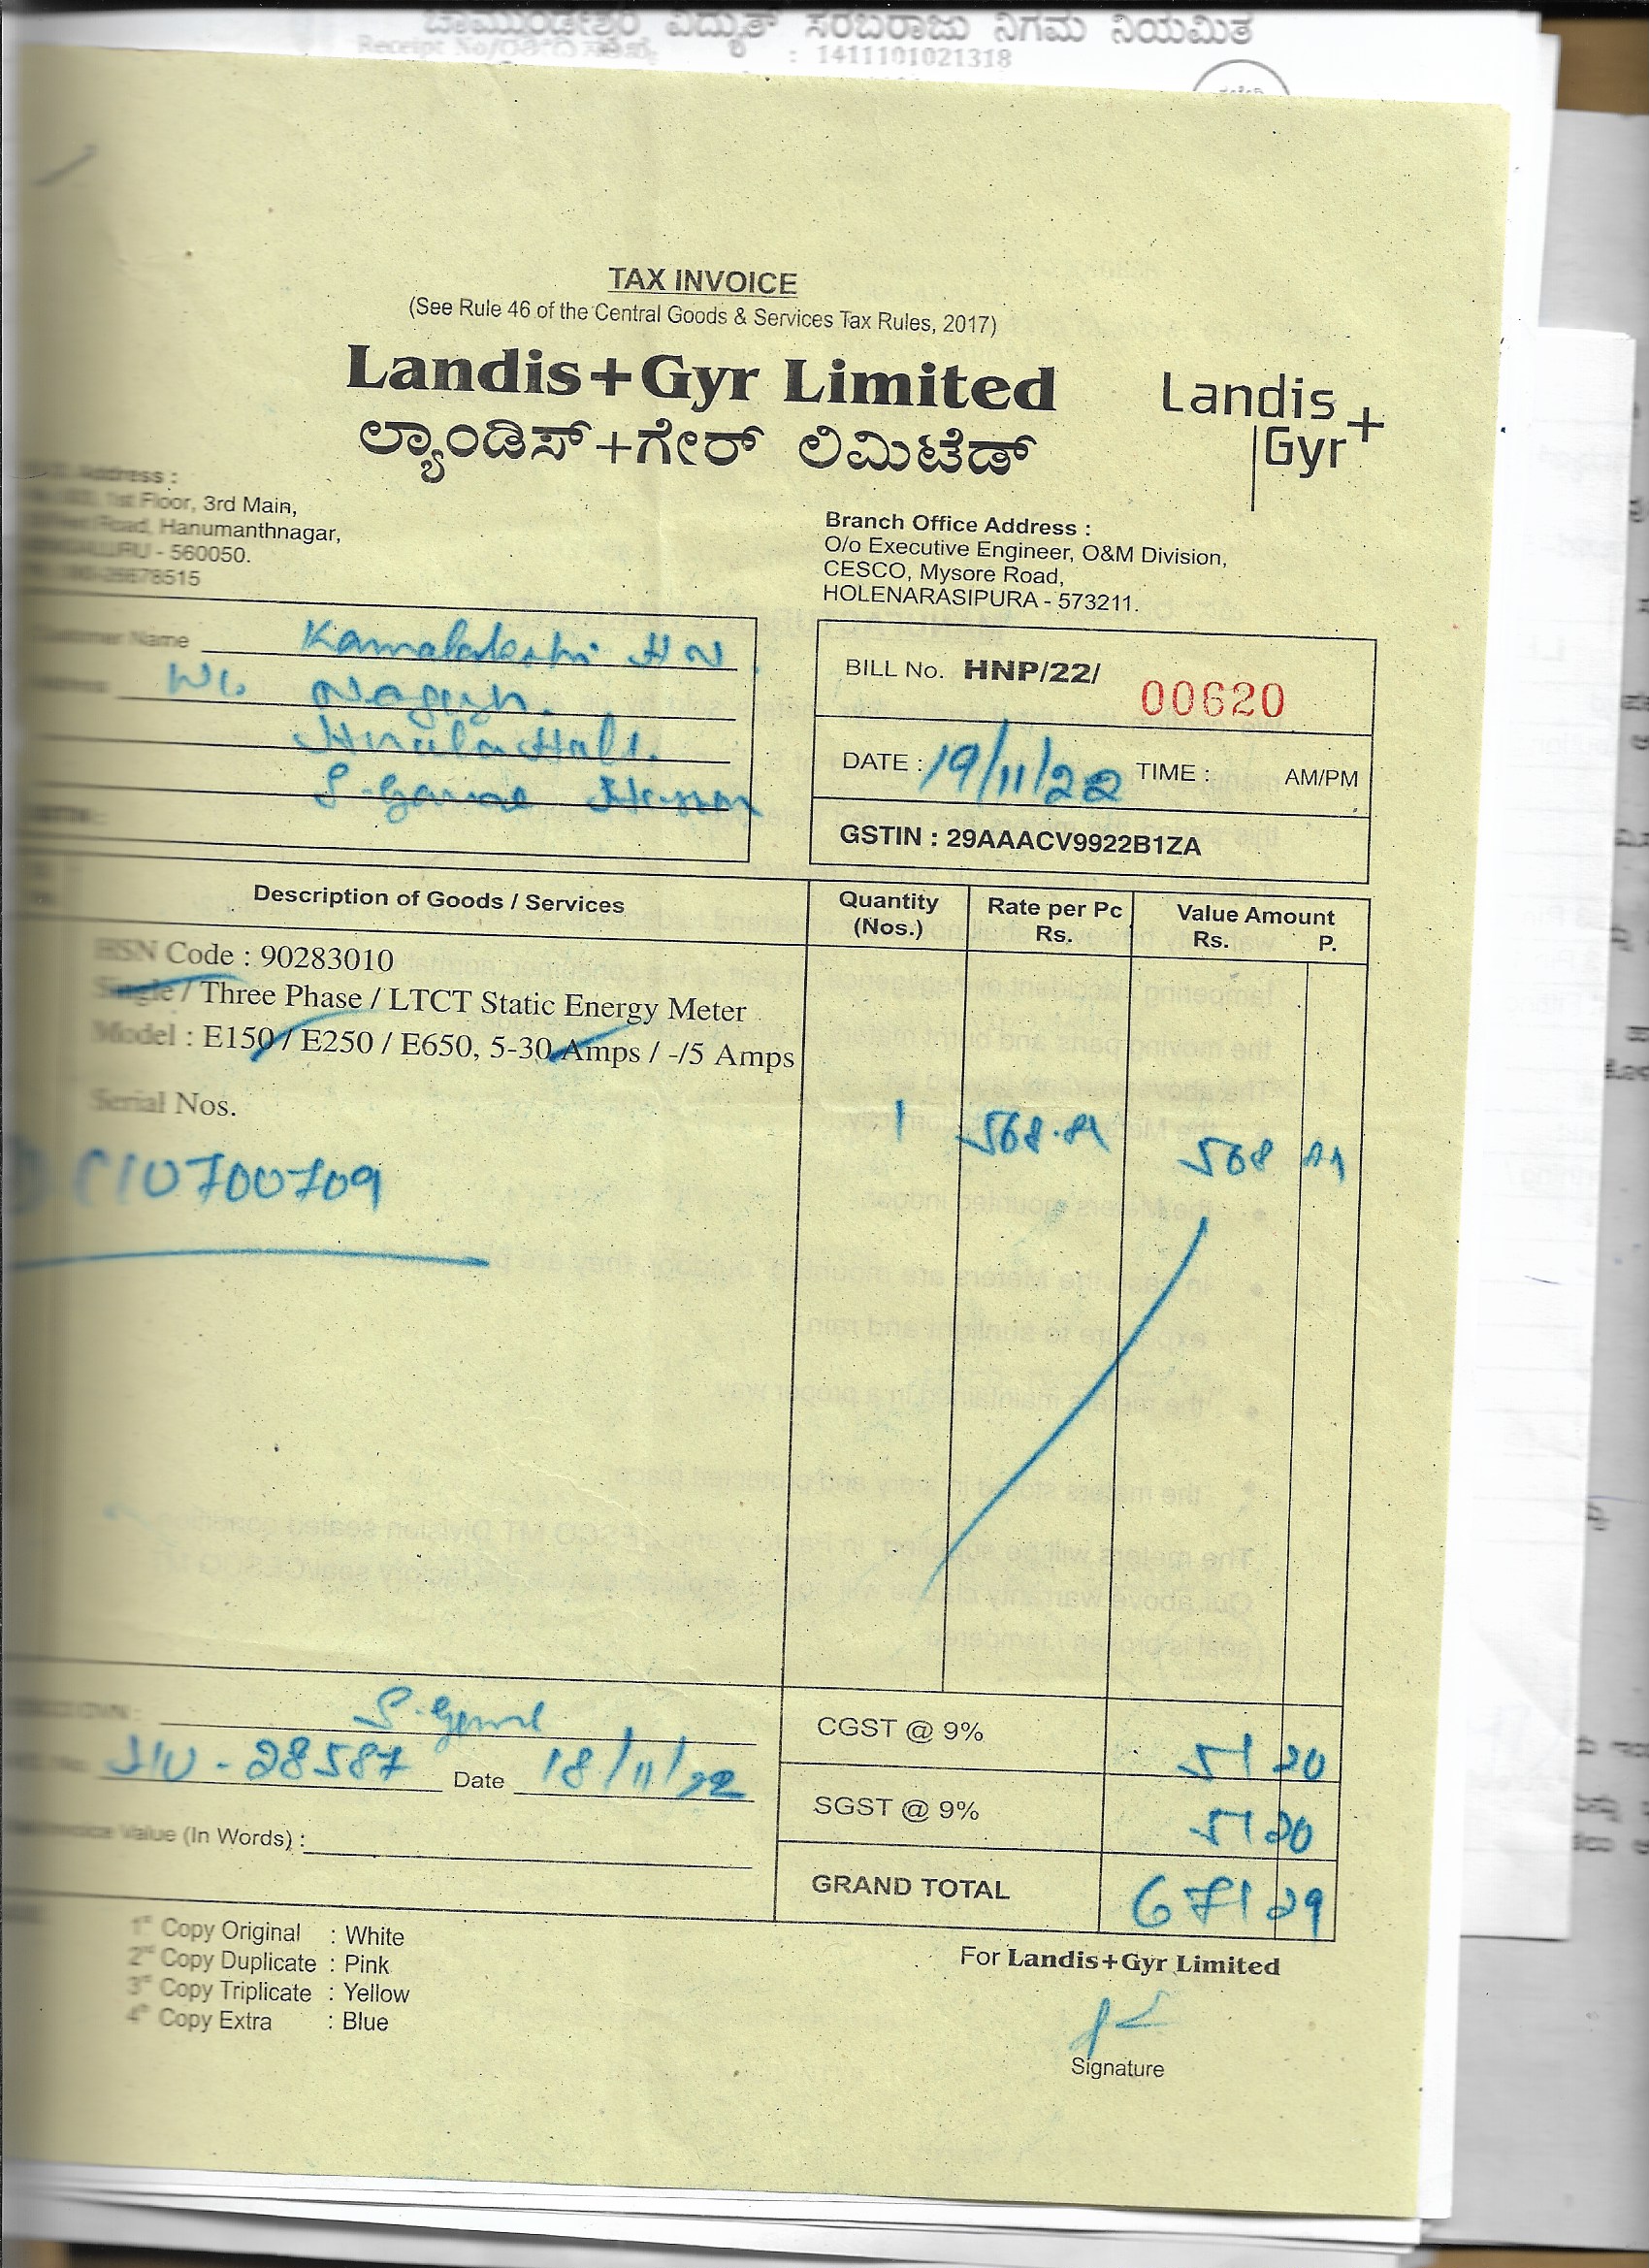 ಚಾಮುಂಡೇಶ್ವರಿ ವಿದ್ಯುತ್ ಸರಬರಾಜು ನಿಗಮ ನಿಯಮಿತ
Receipt No/ : 1411101021318
TAX INVOICE
(See Rule 46 of the Central Goods & Services Tax Rules, 2017)
Landis+Gyr Limited
ಲ್ಯಾಂಡಿಸ್+ಗೇರ್ ಲಿಮಿಟೆಡ್
Landis+
Gyr
Address :
1st Floor, 3rd Main,
Road, Hanumanthnagar,
- 560050.
Branch Office Address :
O/o Executive Engineer, O&M Division,
CESCO, Mysore Road,
HOLENARASIPURA - 573211.
Customer Name Kamalakshi H N
W/o
BILL No. HNP/22/ 00620
DATE : 19/11/22 TIME : AM/PM
GSTIN : 29AAACV9922B1ZA
Description of Goods / Services Quantity (Nos.) Rate per Pc Rs. Value Amount Rs. P.
HSN Code : 90283010
Single / Three Phase / LTCT Static Energy Meter
Model : E150 / E250 / E650, 5-30 Amps / -/5 Amps
Serial Nos.
1 568 568
700709
CGST @ 9% 51 20
28587 Date 18/11/22
SGST @ 9% 51 20
Invoice Value (In Words) :
GRAND TOTAL 671 29
1st Copy Original : White
2nd Copy Duplicate : Pink
3rd Copy Triplicate : Yellow
4th Copy Extra : Blue
For Landis+Gyr Limited
Signature